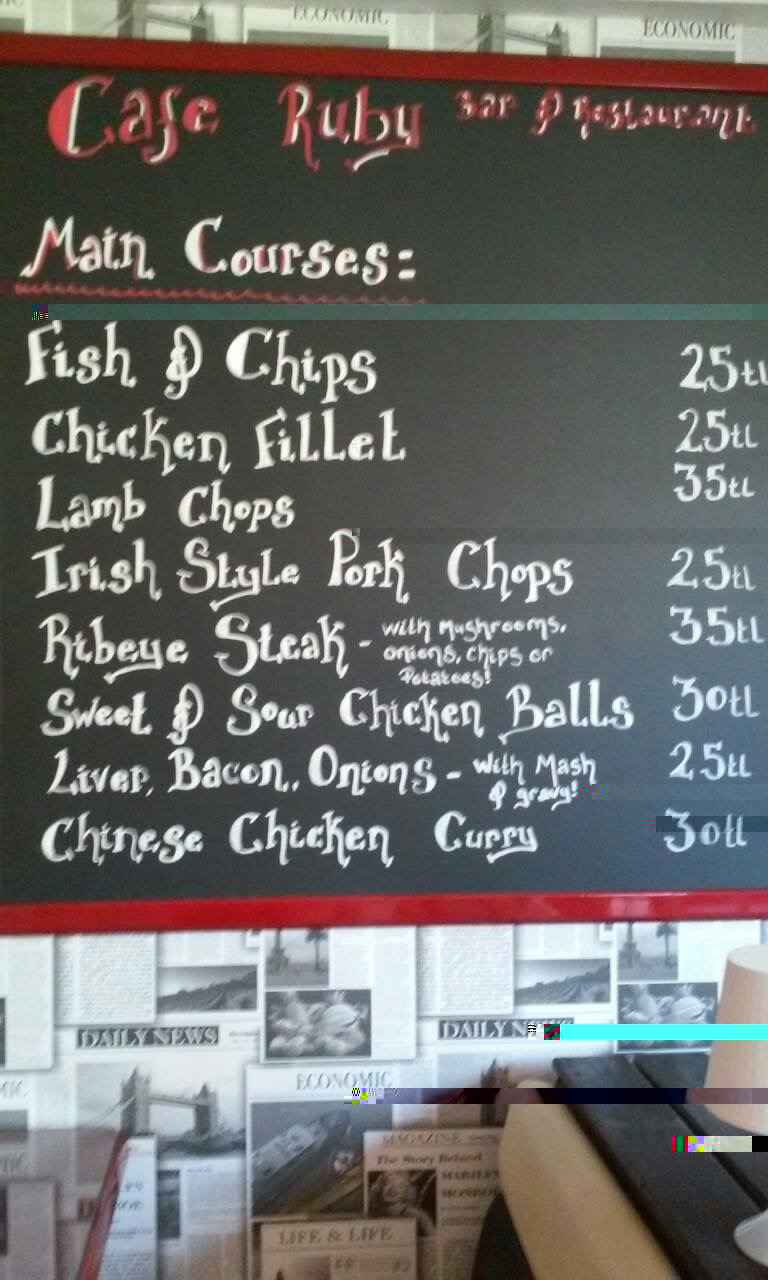 ECONOMIC
ECONOMIC
Cafe Ruby Bar & Restaurant
Main Courses:
Fish & Chips 25tl
Chicken Fillet 25tl
Lamb Chops 35tl
Irish Style Pork Chops 25tl
Ribeye Steak - with Mushrooms, onions, chips or Potatoes! 35tl
Sweet & Sour Chicken Balls 30tl
Liver, Bacon, Onions - with Mash & gravy! 25tl
Chinese Chicken Curry 30tl
DAILY NEWS
DAILY
ECONOMIC
MAGAZINE
The Story Behind
MARILYN
MONRO
LIFE & LIFE